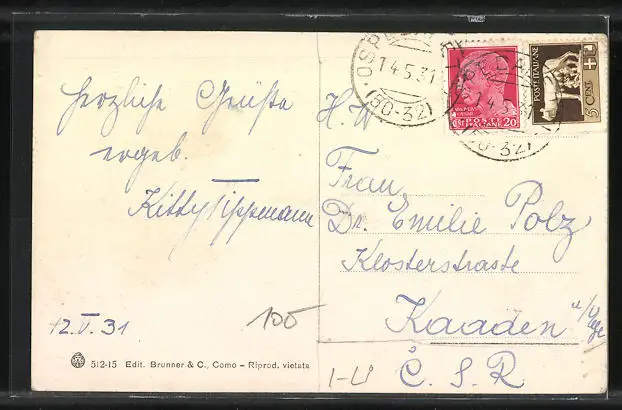 Herzliche Grüße
ergeb.
Kitty Tippmann
12.V.31
100
512-15 Edit. Brunner & C., Como – Riprod. vietata
14.5.31
(30-32)
POSTE
ITALIANE 20
POSTE ITALIANE
5 CENT
H. W.
Frau
Dr. Emilie Polz
Klosterstraste
Kaaden a/Eger
Č. S. R
I-II